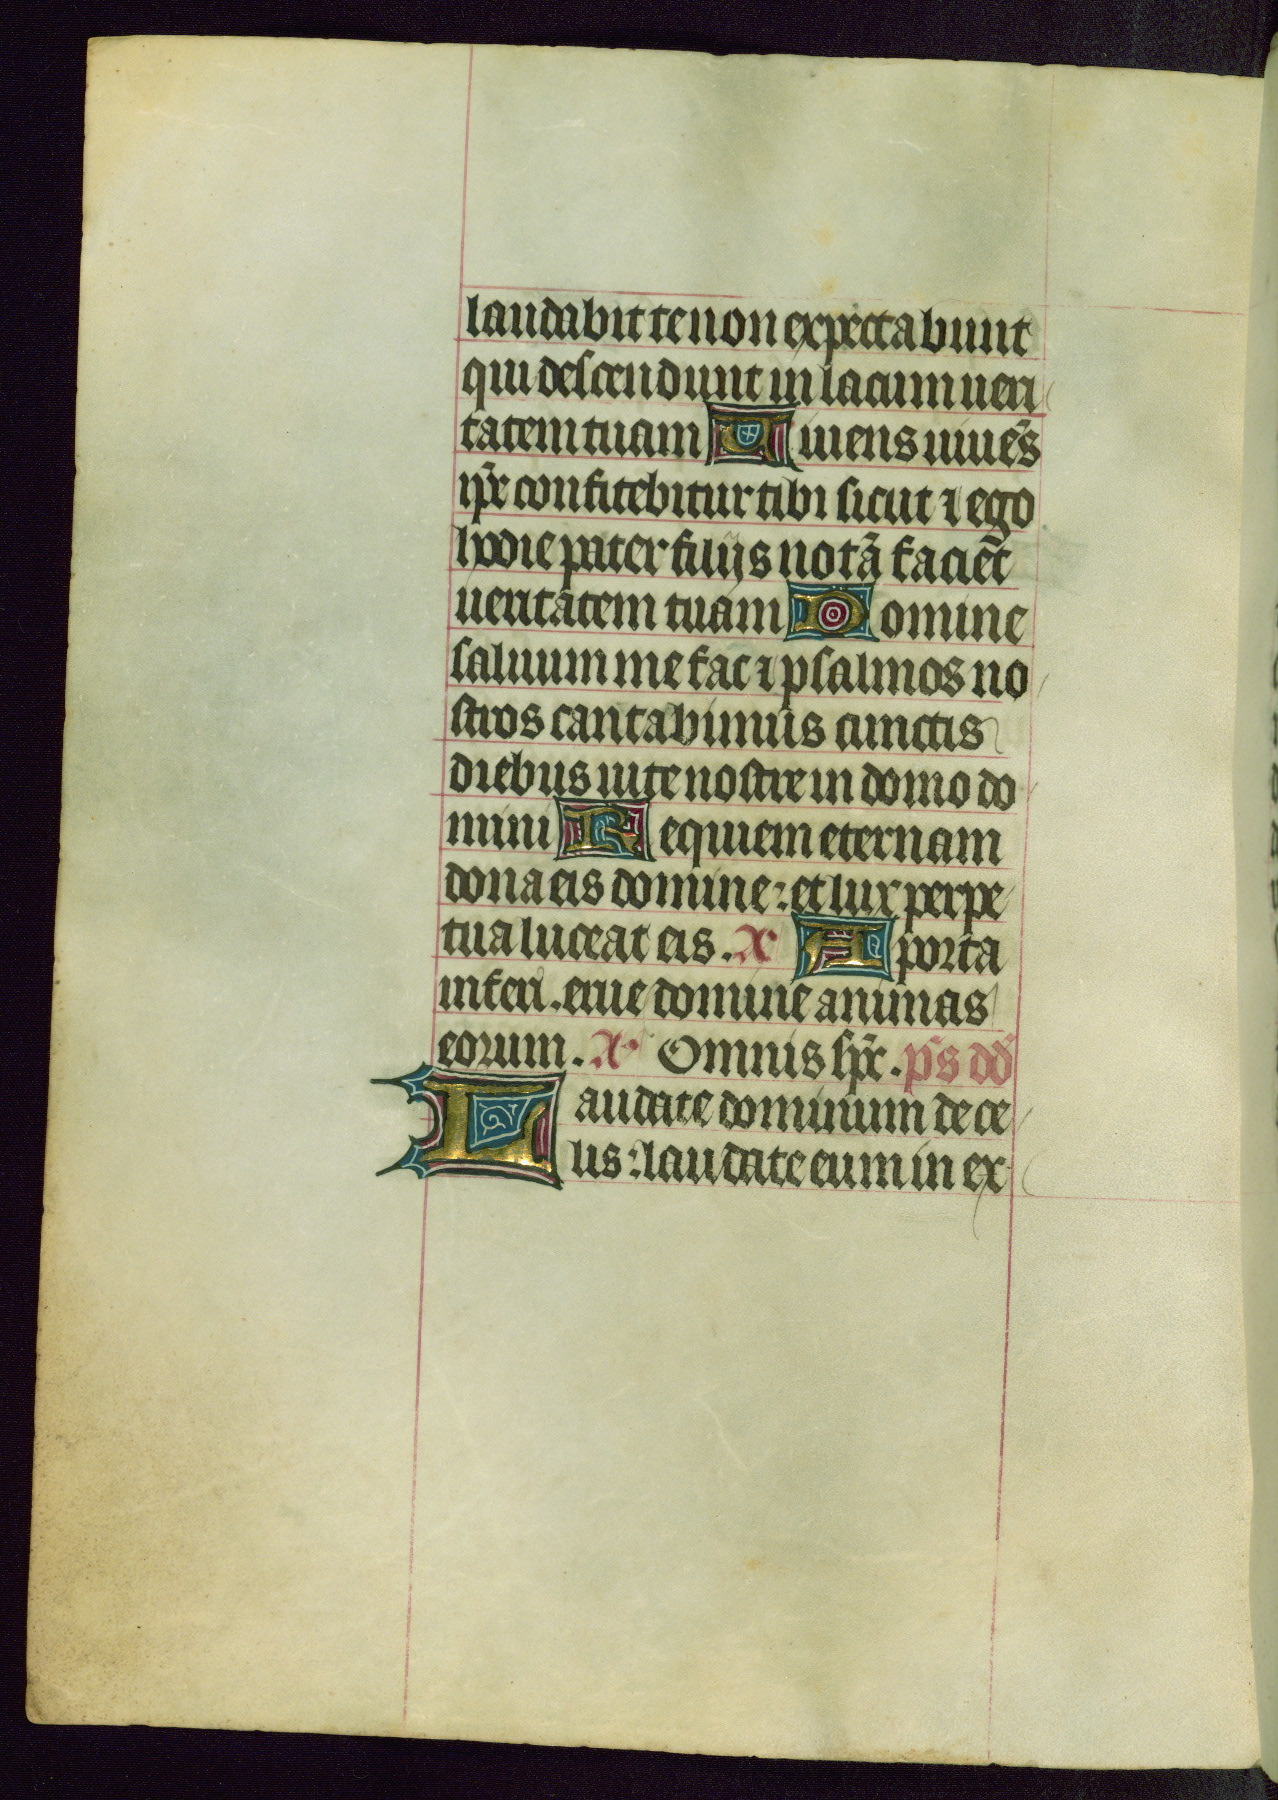 laudabit te non expectabunt
qui descendunt in lacum ueri
tatem tuam Uiuens uiuēs
ip̄e confitebitur tibi sicut ⁊ ego
hodie pater filijs notā faciēt
ueritatem tuam Domine
saluum me fac ⁊ psalmos no
stros cantabimus cunctis
diebus uite nostre in domo do
mini Requiem eternam
dona eis domine: et lux perpe
tua luceat eis. A͞ A porta
inferi. erue domine animas
eorum. A͞ Omnis sp̄c. p̄s dd̄
Laudate dominum de ce
lis: laudate eum in ex